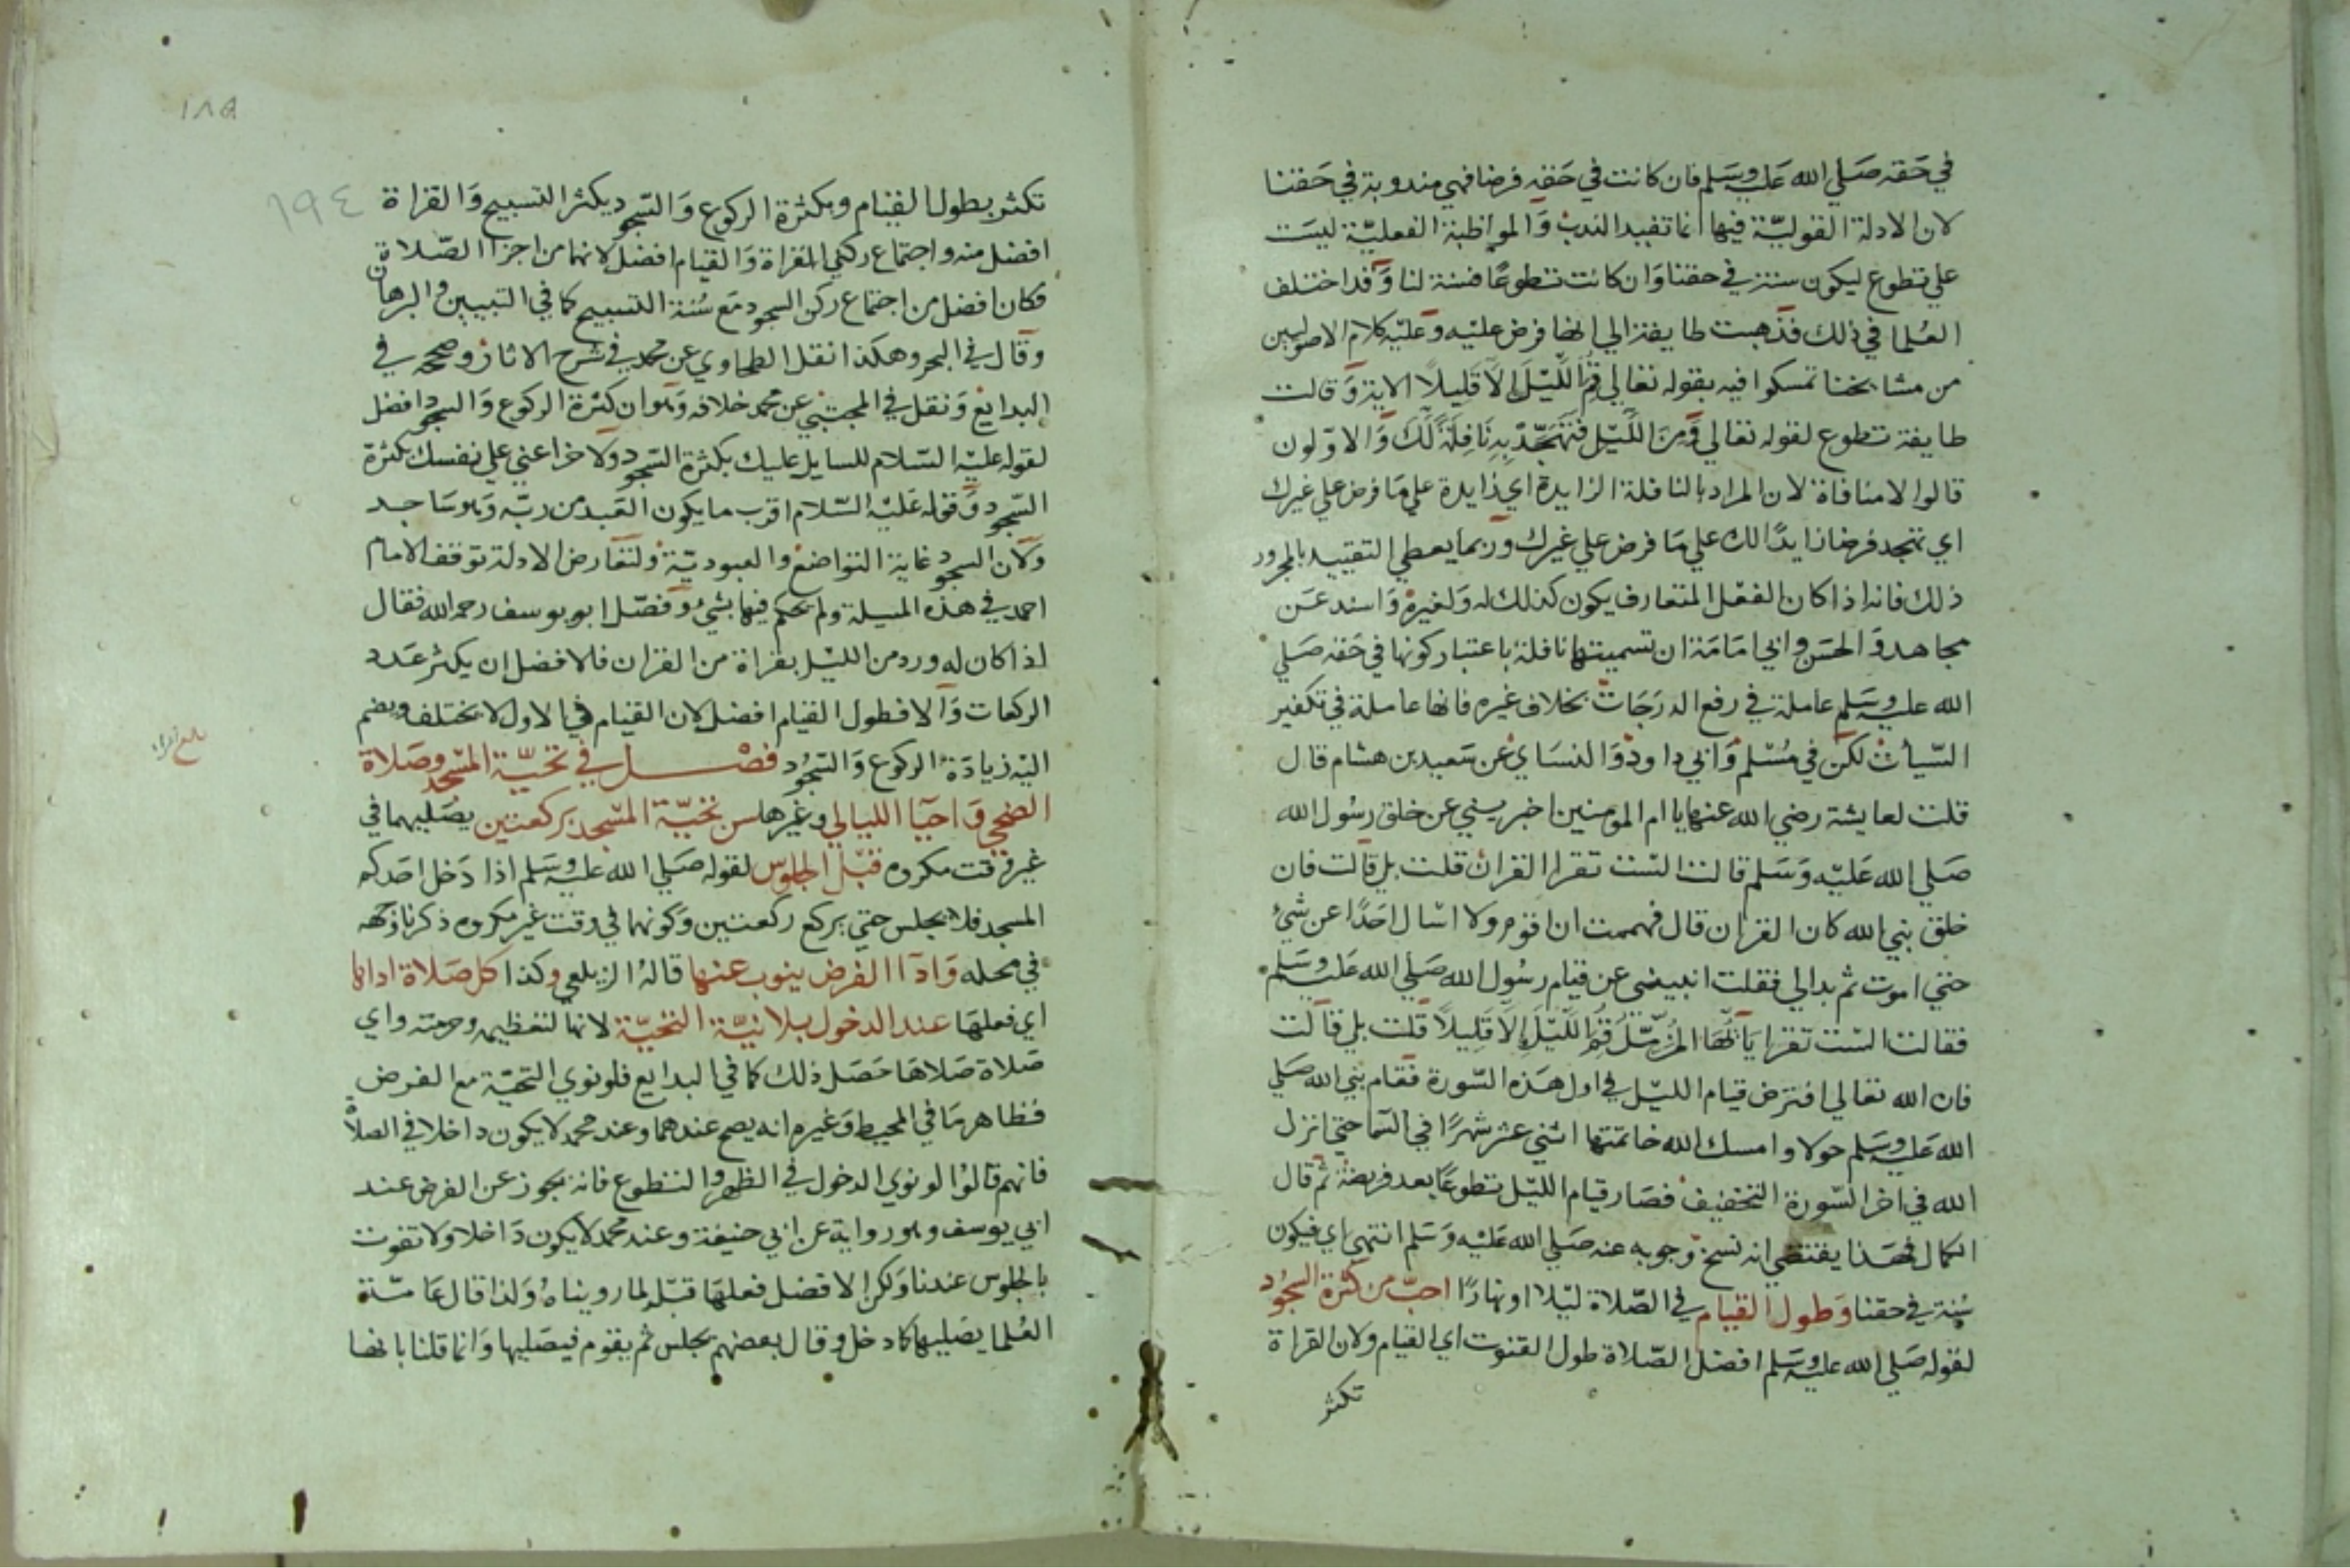 في حقه صلي الله عليه وسلم فان كانت في حقه فرضا فهي مندوبة في حقنا
لان الادلة القوليّة فيها انما تفيد الندب والمواظبة الفعليّة ليست
علي تطوع ليكون سنة في حقنا وان كانت تطوعًا فسنة لنا وقد اختلف
العُلما في ذلك فذهبت طايفة الي انها فرض عليه وعليه كلام الاصوليين
من مشايخنا تمسكوا فيه بقوله تعالي قُمِ اللَّيْلَ إِلَّا قَلِيلًا الاية وقالت
طايفة تطوع لقوله تعالي وَمِنَ اللَّيْلِ فَتَهَجَّدْ بِهِ نَافِلَةً لَّكَ والاوّلون
قالوا لا منافاة لان المراد بالنافلة الزايدة اي زايدة علي ما فرض علي غيرك
اي تهجد فرضا زايدًا لك علي ما فرض علي غيرك وربما يعطي التقييد بالمجرور
ذلك فانه اذا كان الفعل المتعارف يكون كذلك له ولغيره واسند عن
مجاهد والحسن وابي امامة ان تسميتها نافلة باعتبار كونها في حقه صلي
الله عليه وسلم عاملة في رفع الدرجات بخلاف غيره فانها عاملة في تكفير
السّيأت لكن في مُسْلم وابي داود والنساي عن سعيد بن هشام قال
قلت لعايشة رضي الله عنها يا ام المومنين اخبريني عن خلق رسُول الله
صلي الله عليه وسلم قالت الست تقرا القران قلت بلي قالت فان
خلق نبي الله كان القران قال فهممت ان اقوم ولا اسال احدًا عن شيءٍ
حتي اموت ثم بدالي فقلت انبيني عن قيام رسُول الله صلي الله عليه وسلم
فقالت الست تقرا يَا أَيُّهَا الْمُزَّمِّلُ قُمِ اللَّيْلَ إِلَّا قَلِيلًا قلت بلي قالت
فان الله تعالي افترض قيام الليل في اول هذه السّورة فقام نبي الله صلي
الله عليه وسلم حولا وامسك الله خاتمتها اثني عشر شهرًا في السّما حتي انزل
الله في اخر السّورة التخفيف فصار قيام الليل تطوعًا بعد فريضة ثم قال
الكمال فهذا يقتضي انه نسخ وجوبه عنه صلي الله عليه وسلم انتهي اي فيكون
سُنة في حقنا وطول القيام في الصّلاة ليلا او نهارًا احبّ من كثرة السجُود
لقوله صلي الله عليه وسلم افضل الصّلاة طول القنوت اي القيام ولان القراة
تكثر
١٨٥
١٩٤
تكثر بطول القيام وبكثرة الركوع والسّجود يكثر التسبيح والقراة
افضل منه واجتماع ركني القراة والقيام افضل لانهما من اجزا الصّلاة
فكان افضل من اجتماع ركن السجود مع سُنة التسبيح كما في التبيين والبرهان
وقال في البحر وهكذا نقل الطحاوي عن محمد في شرح الاثار وصححه في
البدايع ونقل في المجتبي عن محمد خلافه وهو ان كثرة الركوع والسجود افضل
لقوله عليه السّلام للسايل عليك بكثرة السّجود ولاخر اعني علي نفسك بكثرة
السّجود وقوله عليه السّلام اقرب ما يكون العبد من ربّه وهو ساجد
ولان السجود غاية التواضع والعبوديّة ولتعارض الادلة توقف الامام
احمد في هذه المسيلة ولم يحكم فيها بشيء وفصّل ابو يوسف رحمه الله فقال
اذا كان له ورد من الليل بقراة من القران فالافضل ان يكثر عدد
الركعات والا فطول القيام افضل لان القيام في الاول لا يختلف ويضم
اليه زيادة الركوع والسّجُود فصْل في تحيّة المسجد وصلاة
الضحي واحيا الليالي وغيرها سن تحيّة المسجد بركعتين يصليهما في
غير وقت مكروه قبْل الجلوس لقوله صلي الله عليه وسلم اذا دخل احدكم
المسجد فلا يجلس حتي يركع ركعتين وكونهما في وقت غير مكروه ذكرناه
في محله واداا الفرض ينوب عنها قالهُ الزيلعي وكذا كل صلاة اداها
اي فعلها عند الدخول بلا نيّة التحيّة لانها لتعظيمه وحرمته واي
صلاة صلاها حصل ذلك كما في البدايع فلو نوي التحيّة مع الفرض
فظاهر ما في المحيط وغيره انه يصح عندهما وعند محمد لا يكون داخلا في الصلاة
فانهم قالوا لو نوي الدخول في الظهر والتطوع فانه يجوز عن الفرض عند
ابي يوسف وهو رواية عن ابي حنيفة وعند محمد لا يكون داخلا ولا تفوت
بالجلوس عندنا ولكن الافضل فعلها قبله لما رويناهُ ولذا قال عامّة
العُلما يصليها كما دخل وقال بعضهم يجلس ثم يقوم فيصليها وانما قلنا بانها
بلغ